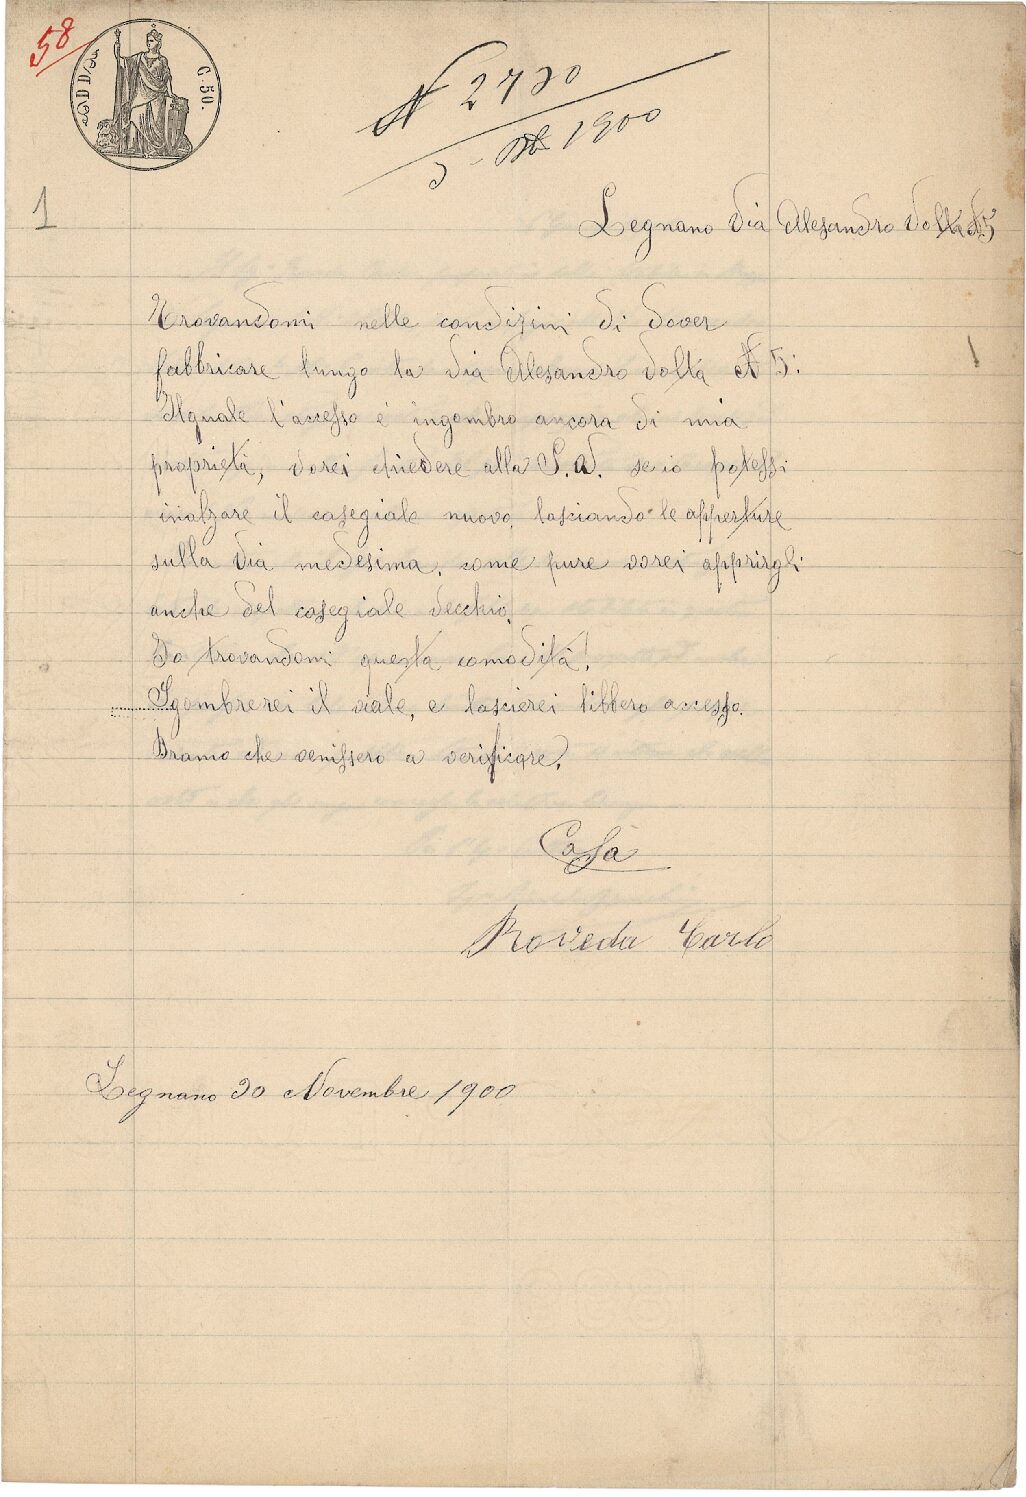 58
C. 50.
N 2730
3 - Xbe 1900
1
Legnano Via Alesandro Volta N 5
Trovandomi nelle condizini di dover
fabbricare lungo la via Alesandro Volta N 5:
Ilquale l'accesso é ingombro ancora di mia
proprietá, vorei chiedere alla S.V. se io potessi
inalzare il casegiale nuovo, lasciando le apperture
sulla Via medesima, come pure vorei apprirgli
anche del casegiale vecchio.
Io trovandomi questa comoditá!
Sgombrerei il viale, e lascierei libbero accesso.
Bramo che venissero a verificare.
Casa
Roveda Carlo
Legnano 30 Novembre 1900